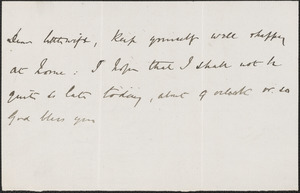 Dear littlewife, keep yourself well & happy
at home: I hope that I shall not be
quite so late today, about 9 oclock or so
God bless you